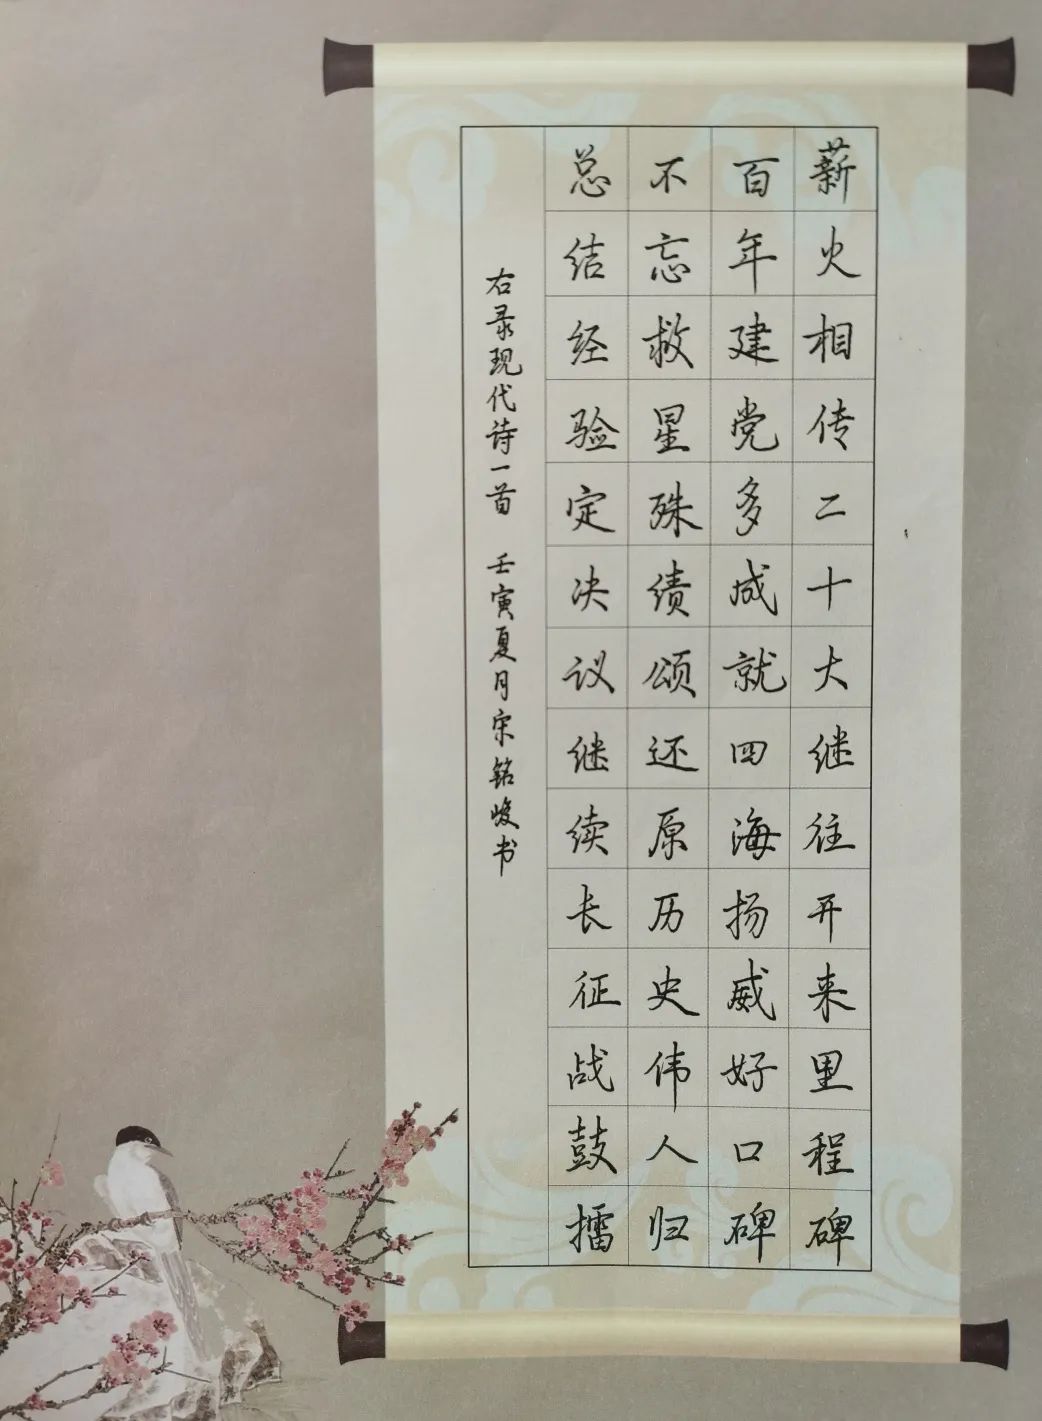 薪火相传二十大继往开来里程碑
百年建党多成就四海扬威好口碑
不忘救星殊绩颂还原历史伟人归
总结经验定决议继续长征战鼓擂
右录现代诗一首 壬寅夏月宋铭峻书